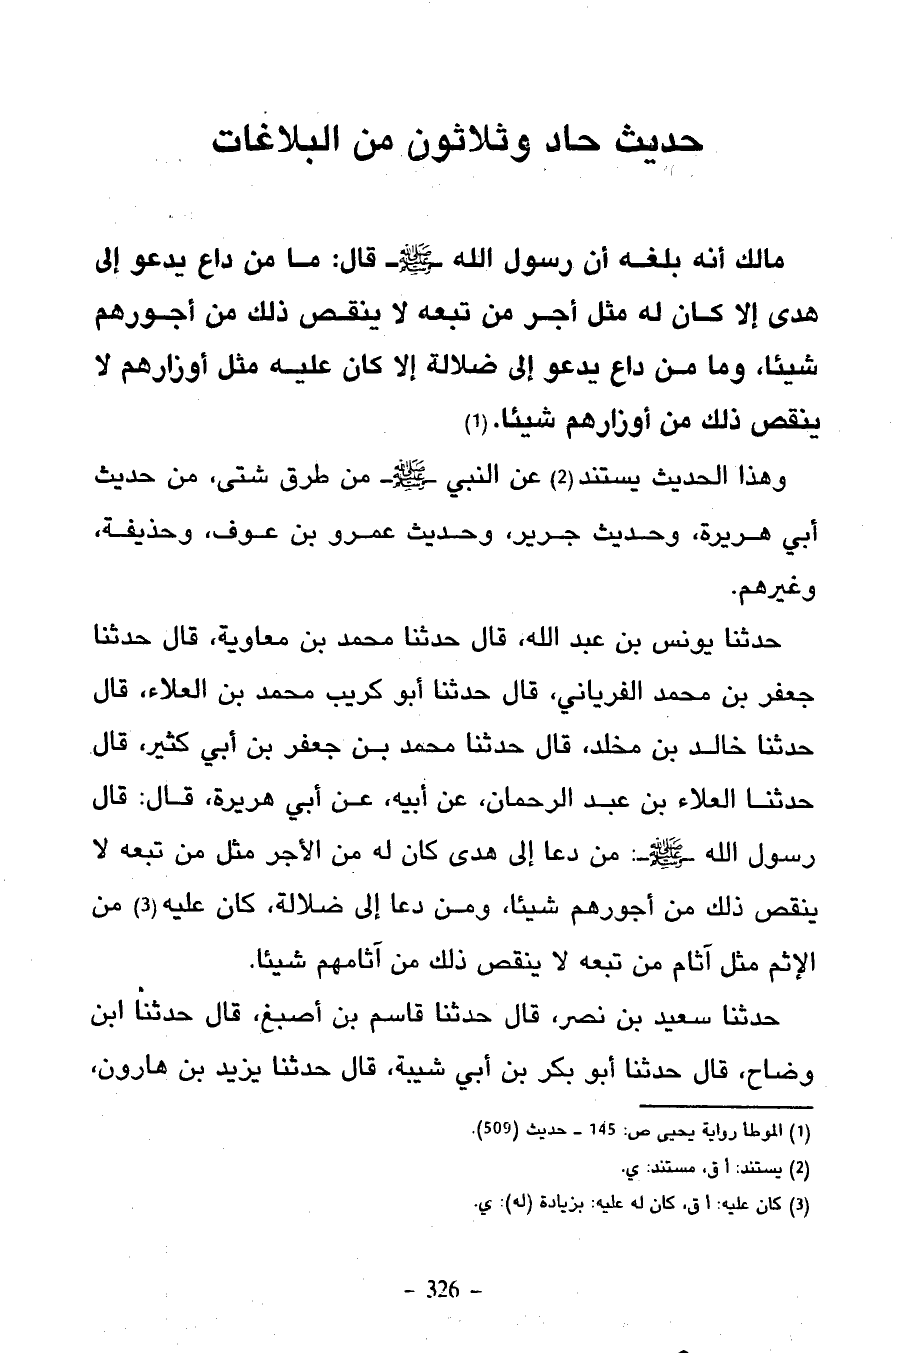 حديث حاد وثلاثون من البلاغات
مالك أنه بلغه أن رسول الله -ﷺ- قال: ما من داع يدعو إلى
هدى إلا كان له مثل أجر من تبعه لا ينقص ذلك من أجورهم
شيئا، وما من داع يدعو إلى ضلالة إلا كان عليه مثل أوزارهم لا
ينقص ذلك من أوزارهم شيئا. (1)
وهذا الحديث يستند (2) عن النبي -ﷺ- من طرق شتى، من حديث
أبي هريرة، وحديث جرير، وحديث عمرو بن عوف، وحذيفة،
وغيرهم.
حدثنا يونس بن عبد الله، قال حدثنا محمد بن معاوية، قال حدثنا
جعفر بن محمد الفرياني، قال حدثنا أبو كريب محمد بن العلاء، قال
حدثنا خالد بن مخلد، قال حدثنا محمد بن جعفر بن أبي كثير، قال
حدثنا العلاء بن عبد الرحمان، عن أبيه، عن أبي هريرة، قال: قال
رسول الله -ﷺ-: من دعا إلى هدى كان له من الأجر مثل من تبعه لا
ينقص ذلك من أجورهم شيئا، ومن دعا إلى ضلالة، كان عليه (3) من
الإثم مثل آثام من تبعه لا ينقص ذلك من آثامهم شيئا.
حدثنا سعيد بن نصر، قال حدثنا قاسم بن أصبغ، قال حدثنا ابن
وضاح، قال حدثنا أبو بكر بن أبي شيبة، قال حدثنا يزيد بن هارون،
(1) الموطأ رواية يحيى ص: 145 - حديث (509).
(2) يستند: أ ق، مستند: ي.
(3) كان عليه: أ ق، كان له عليه: بزيادة (له): ي.
- 326 -